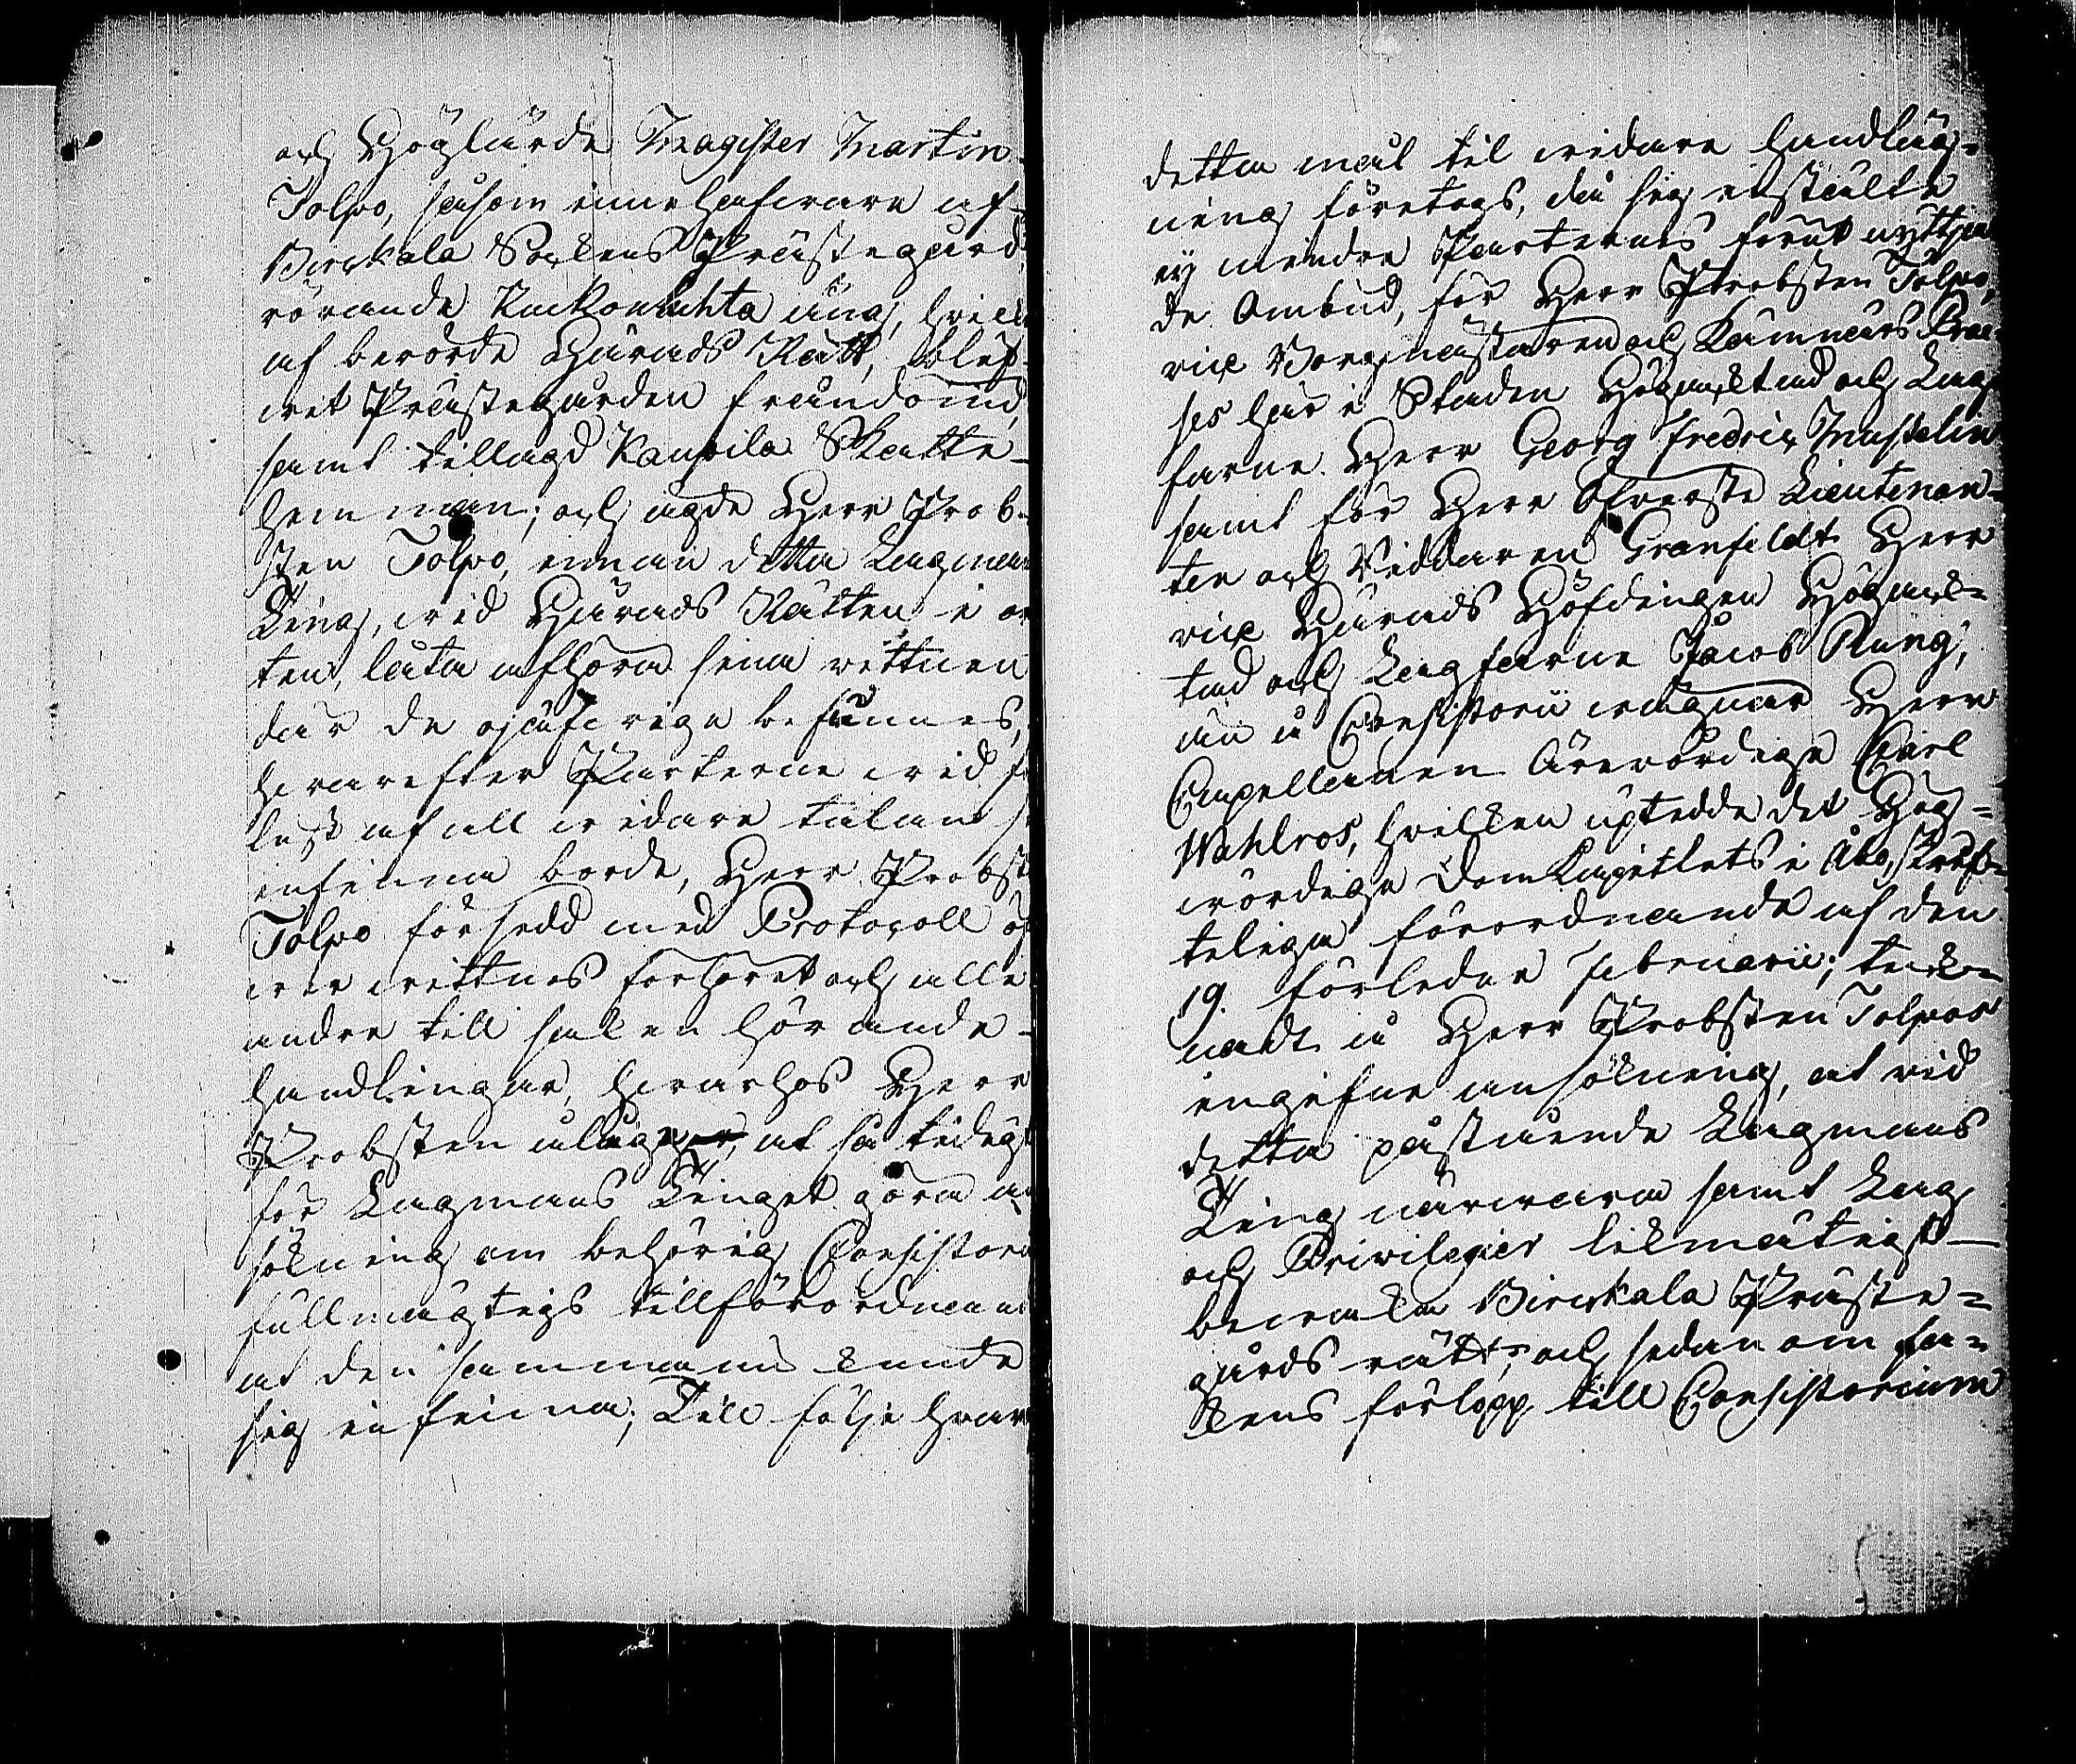 och Höglärde Magister Martin
Tolpo, såsom innehafware af
Birckala Sockens Prästegård
rörande Kuckonuhta äng, hvilk
af berörde Härads Rätt, blef-
wet Prästegården fråndömd,
samt tillagd Kaupila Skatte-
hemman; och ägde Herr Prob-
sten Tolpo, innan detta Lagmans
Ting, wid Härads Rätten i or
ten, låta afhöra sina wittnen
där de ojäfvige befunnes,
hwarefter Parterne wid för
lust af all widare talan sig
infinna borde, Herr Probst
Tolpo försedd med Protocoll öf
wer wittnes förhöret och alle
andre till saken hörande
handlingar, hwarhos Herr
Probsten ålåg, at så tidigt
för Lagmans Tinget göra an
sökning om behörig Consistorii
fullmägtigs tillförordnan
at den samma kunde
sig infinna; Till följe hvar
detta mål til widare handläg-
ning företogs, då sig instälte
ej mindre Parternes förut nyttja
de Ombud, för Herr Probsten Tolpo,
vice Borgmästaren och Kämnärs Præ-
ses här i Staden Högacktad och Lag-
farne Herr Georg Fredric Mustelin
samt för Herr Öfwerste Lieutenan-
ten och Riddaren Granfeldt Herr
vice Härads Höfdingen Högack-
tad och Lagfarne Jacob Rung,
än å Consistorii wägnar Herr
Capellanen Ärewördige Carl
Wahlros, hvilken uptedde det Hög-
wördige DomKapitlets i Åbo, skrif-
telige förordnande af den
19. förledne Februarii; teck-
nadt å Herr Probsten Tolpos
ingifne ansökning, at vid
detta påstående Lagmans
Ting närwara samt Lag
och Privilegier likmätigst
bewaka Birckala Präste-
gårds rätt, och sedan om sa-
kens förlopp till Consistorium